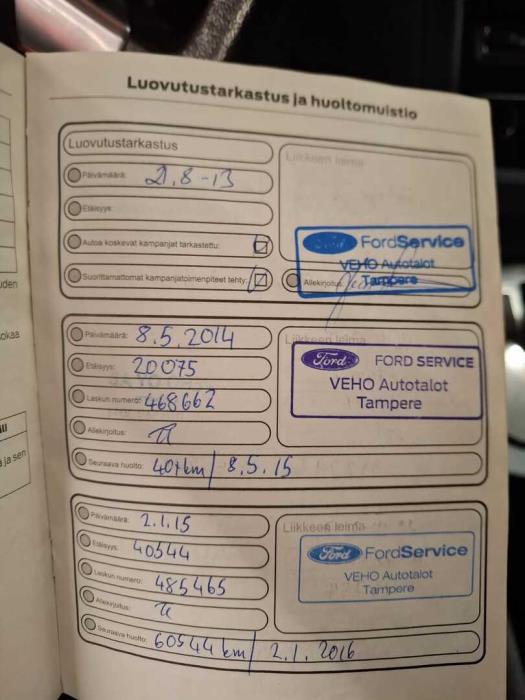 Luovutustarkastus ja huoltomuistio
Luovutustarkastus
Päivämäärä: 2.8-13
Etäisyys:
Autoa koskevat kampanjat tarkastettu:
Suorittamattomat kampanjatoimenpiteet tehty:
Liikkeen leima
Ford FordService
VEHO Autotalot
Tampere
Allekirjoitus:
Päivämäärä: 8.5.2014
Etäisyys: 20075
Laskun numero: 468662
Allekirjoitus:
Seuraava huolto: 40tkm / 8.5.15
Liikkeen leima
Ford FORD SERVICE
VEHO Autotalot
Tampere
Päivämäärä: 2.1.15
Etäisyys: 40544
Laskun numero: 485465
Allekirjoitus:
Seuraava huolto: 60544 km / 2.1.2016
Liikkeen leima
Ford FordService
VEHO Autotalot
Tampere
uden
okaa
a ja sen